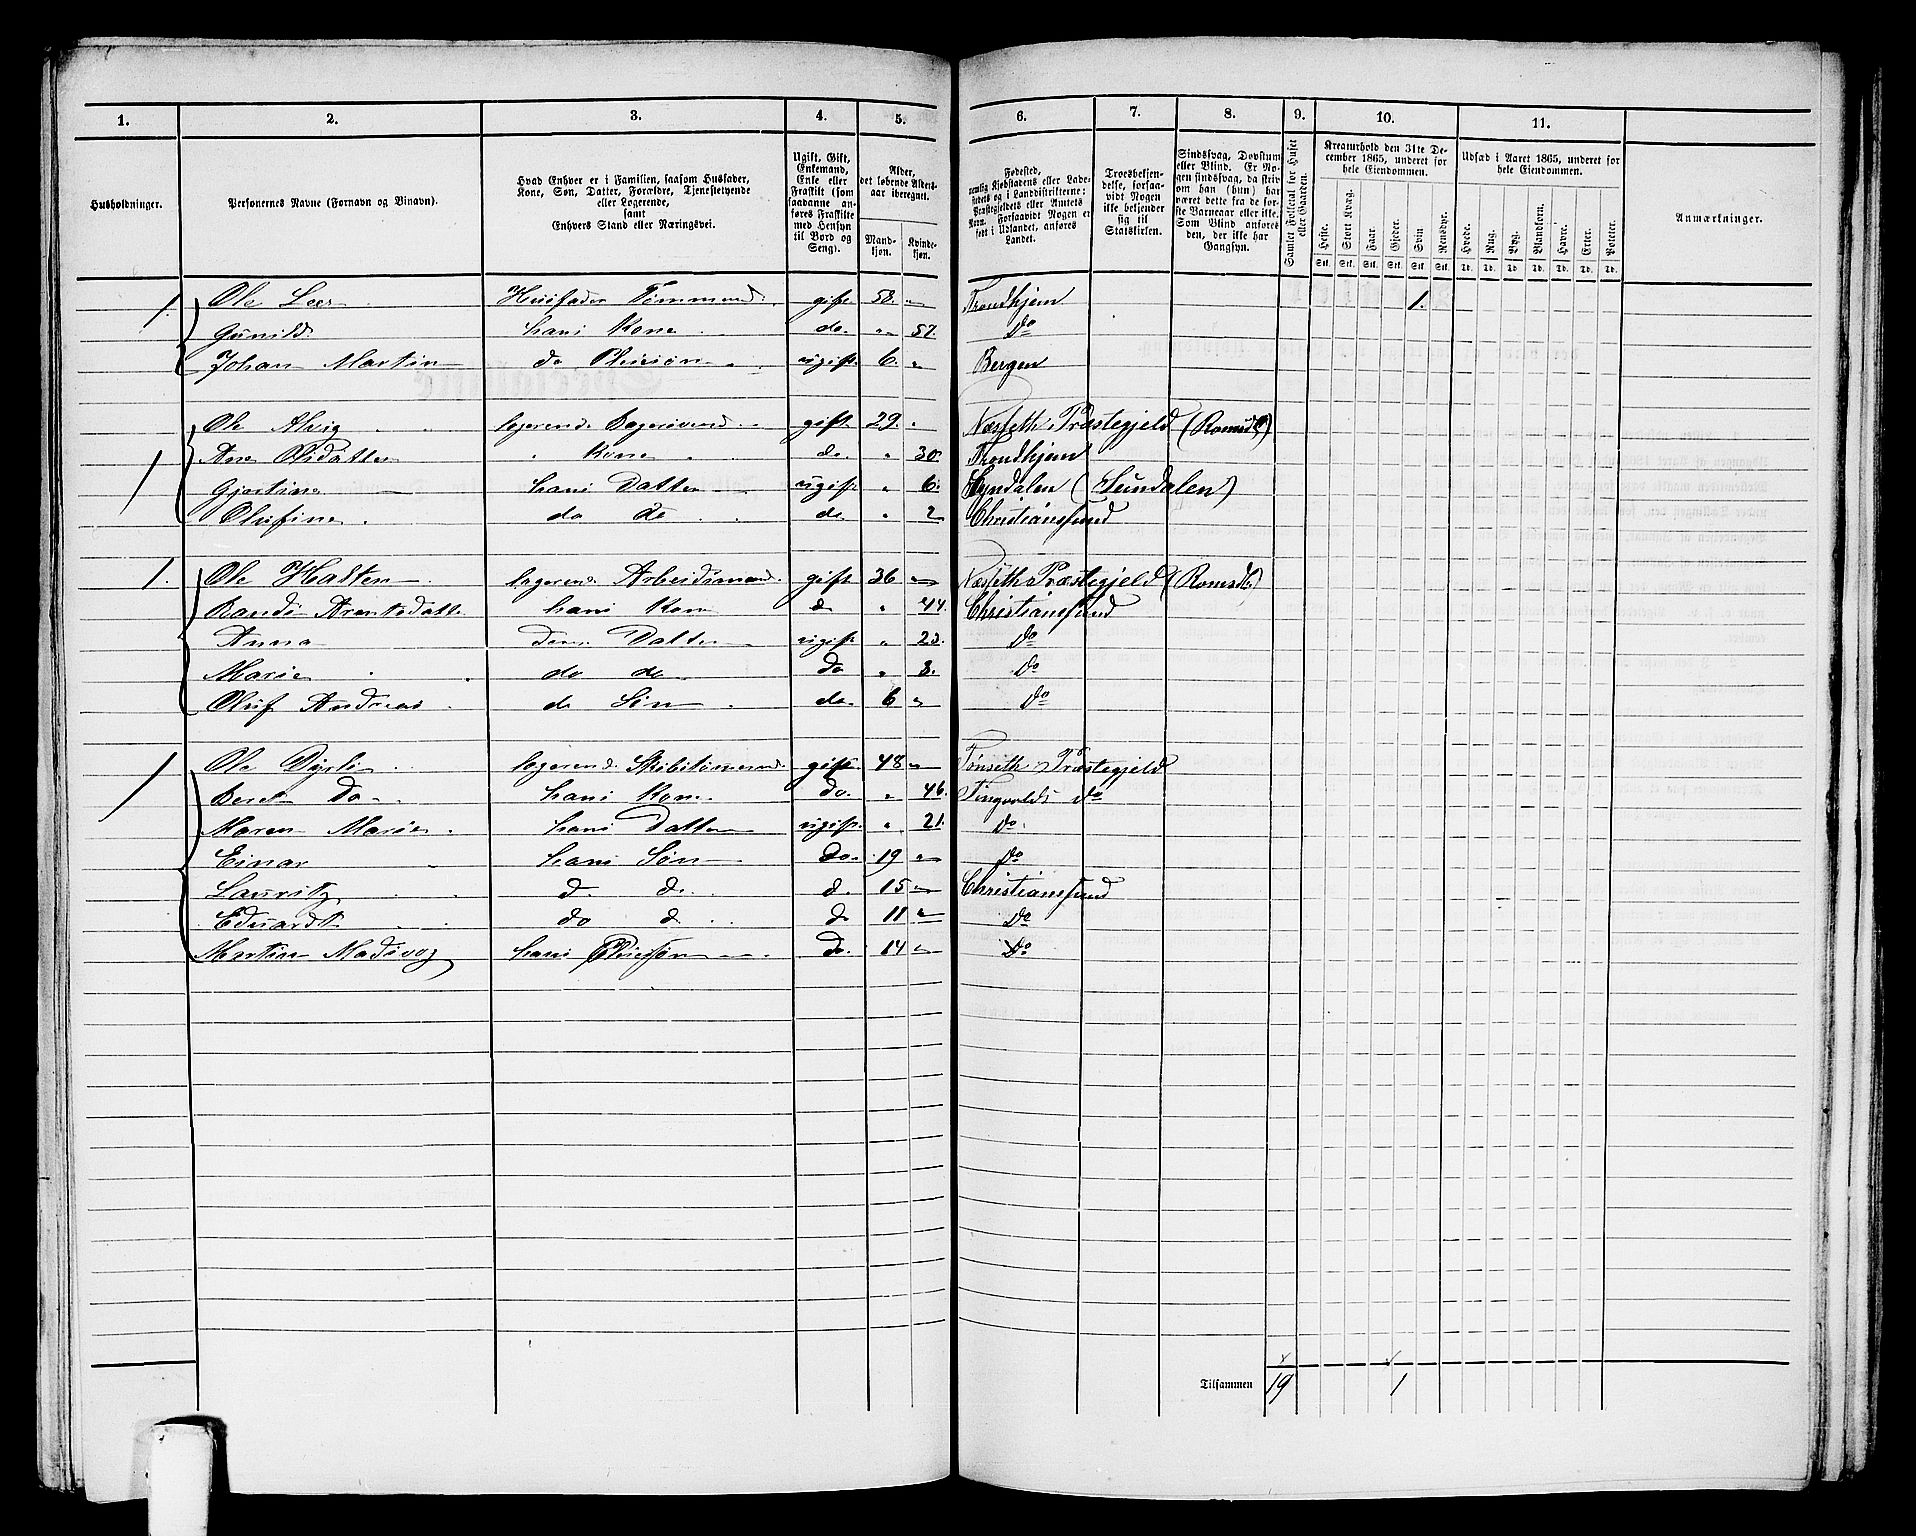 1. 2. 3. 4. 5. 6. 7. 8. 9. 10. 11.
Husholdninger.
Personernes Navne (Fornavn og Binavn).
Hvad Enhver er i Familien, saasom Husfader,
Kone, Søn, Datter, Forældre, Tjenestetyende
eller Logerende,
samt
Enhvers Stand eller Næringsvei.
Ugift, Gift,
Enkemand,
Enke eller
Fraskilt (som
saadanne an-
føres Fraskilte
med Hensyn
til Bord og
Seng).
Alder,
det løbende Alders-
aar iberegnet.
Mand-
kjøn.
Kvinde-
kjøn.
Fødested,
nemlig Kjøbstadens eller Lade-
stedets og i Landdistrikterne:
Præstegjeldets eller Amtets
Navn. Forsaavidt Nogen er
født i Udlandet, anføres
Landet.
Troesbekjen-
delse, forsaa-
vidt Nogen
ikke bekjender
sig til
Statskirken.
Sindssvag, Døvstum
eller Blind. Er No-
gen sindssvag, da skriv
om han (hun) har
været dette fra de før-
ste Barneaar eller ikke.
Som Blind anføres
den, der ikke har
Gangsyn.
Samlet Folketal for Huset
eller Gaarden.
Kreaturhold den 31te De-
cember 1865, underet for
hele Eiendommen.
Heste. Stort Kvæg. Faar. Gjeder. Svin. Rensdyr.
Stk. Stk. Stk. Stk. Stk. Stk.
Udsæd i Aaret 1865, underet for
hele Eiendommen.
Hvede. Rug. Byg. Blandkorn. Havre. Erter. Poteter.
Td. Td. Td. Td. Td. Td. Td.
Anmærkninger.
1. Ole Husfader gift 58. " Trondhjem 1.
Gunild hans Kone do. " 57. Do
Johan Martin do Pleiesøn ugift 6. " Bergen
Ole Alvig logerende gift 29. " Næsseth Præstegjeld (Romsd)
1 Ane Olsdatter " Kone " do " 30. Trondhjem
Gjertine hans Datter ugift " 6. Lyndalen (Sundalen)
Olufine do do do " 2 Christianssund
1. Ole Halten logerende Arbeidsmand gift 36 " Næsseth Præstegjeld (Romsd)
Arentsdatt hans Kone do " 44. Christianssund
Anna Datter ugift " 23. Do
Marie do do Do " 8. Do
Oluf Andreas do Søn do. 6 " Do
1 Ole Dyrli logerende gift 48 " Præstegjeld
Beret Do hans Kone Do. " 46. Tingvolds Do
Maren Marie hans Datter ugift " 21. Do
Einar hans Søn Do 19 " Do
Lauritz d. d. d. 15 " Christianssund
Eduardt do d d 11 " Do
Martin hans Pleiesøn Do. 14 " Do
Tilsammen 19 1